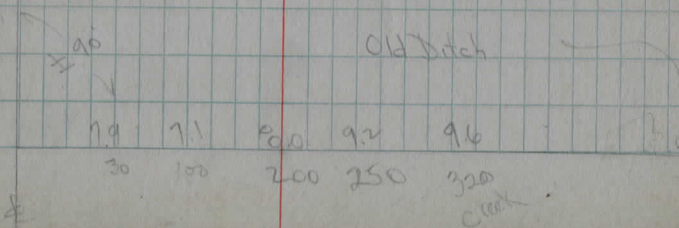 90
Old Ditch
7.9 7.1 9.2 9.6
30 100 200 250 320
Creek